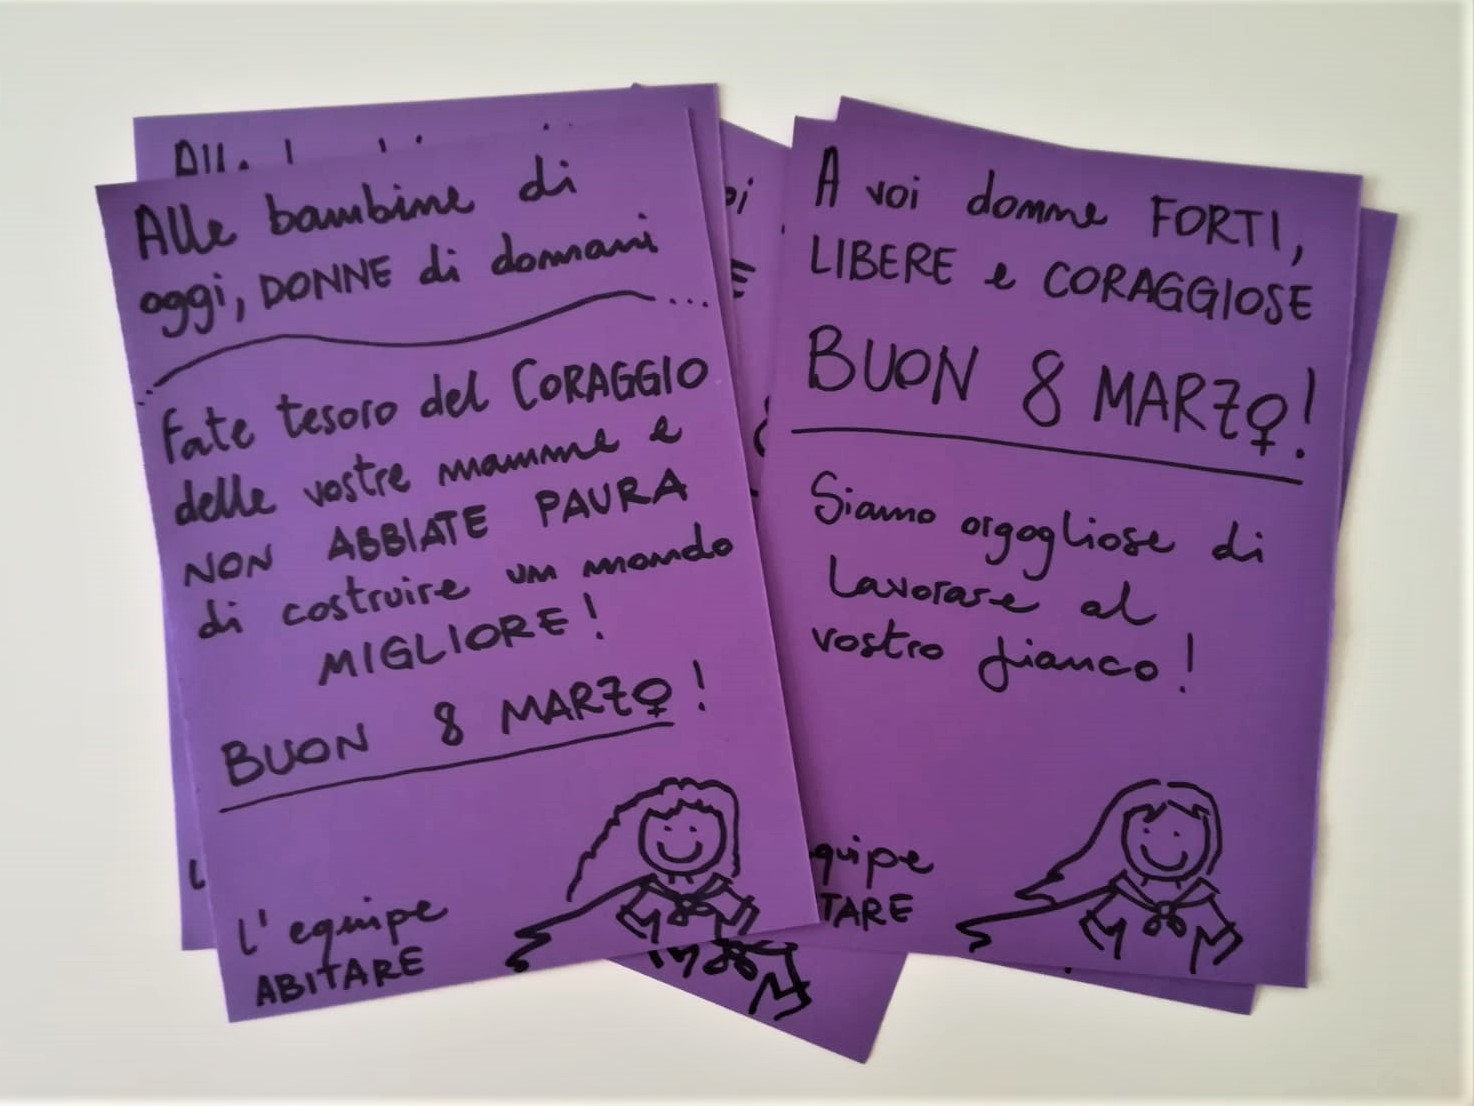 Alle bambine di
oggi, DONNE di domani
...
Fate tesoro del CORAGGIO
delle vostre mamme e
NON ABBIATE PAURA
di costruire un mondo
MIGLIORE!
BUON 8 MARZ♀!
L'equipe
ABITARE
A voi donne FORTI,
LIBERE e CORAGGIOSE
BUON 8 MARZ♀!
Siamo orgogliose di
lavorare al
vostro fianco!
quipe
TARE